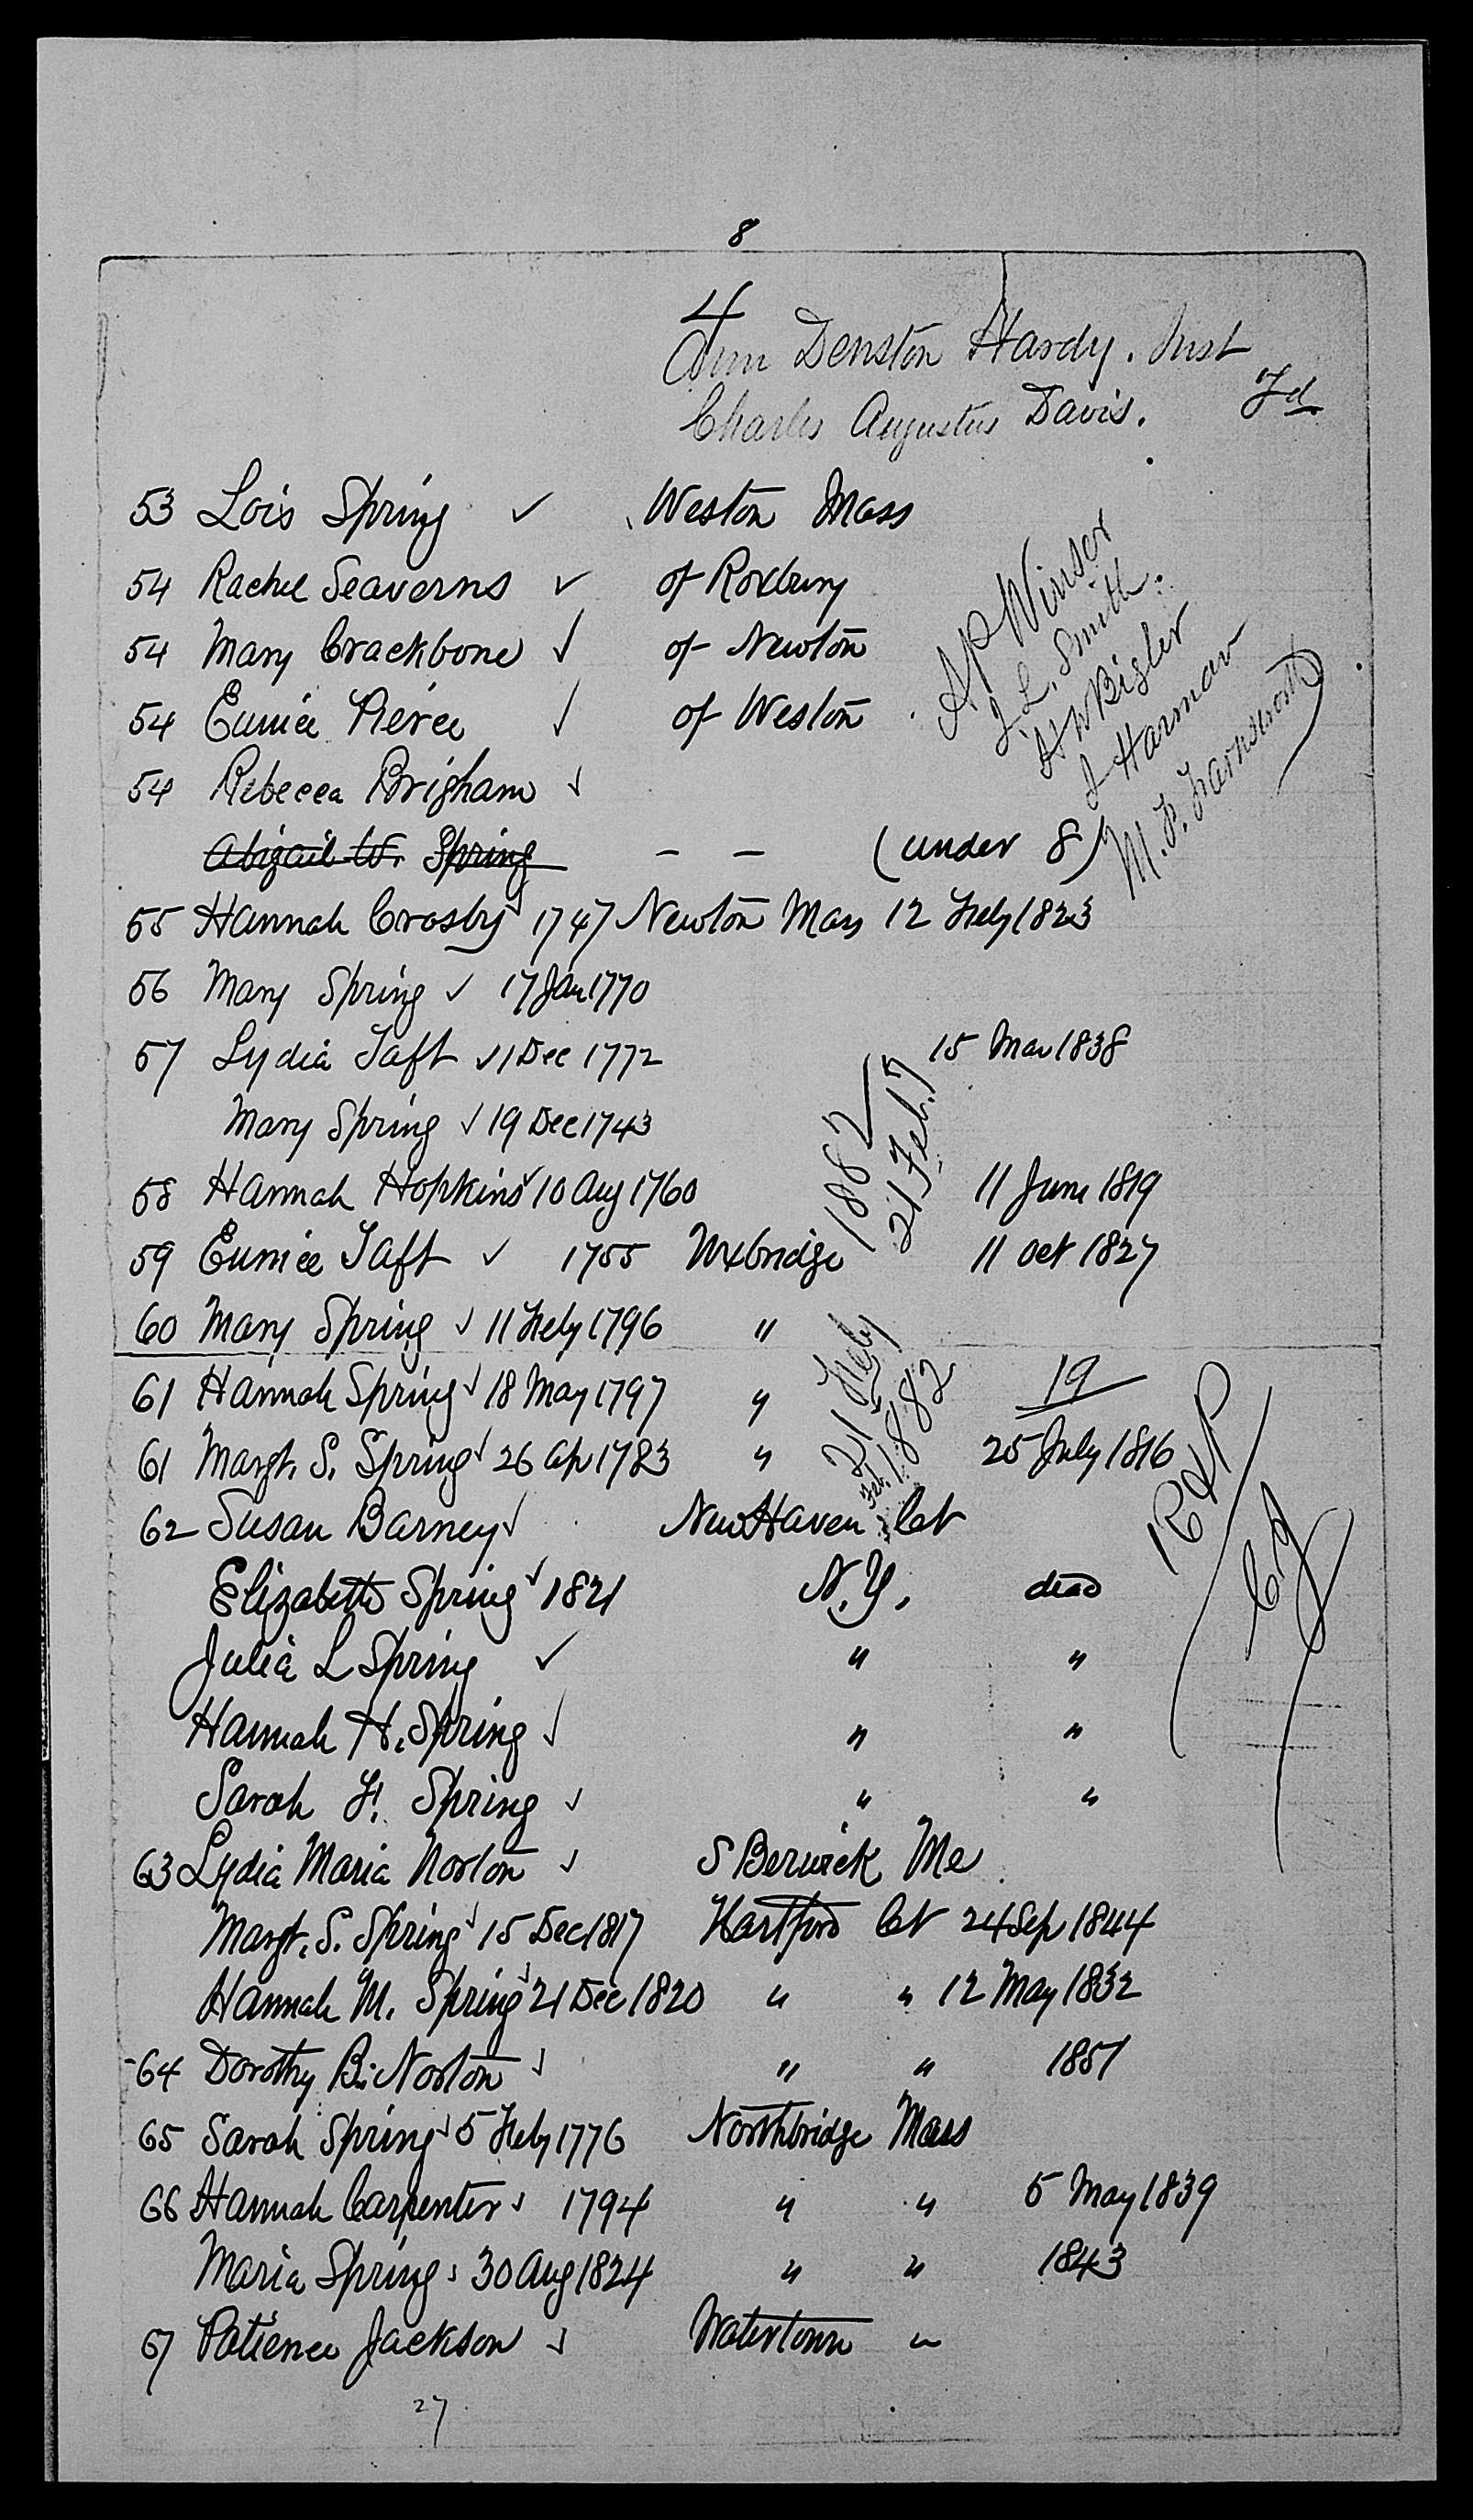 8
4
Ann Denston Hardy. Inst
Charles Augustus Davis. Fd
53 Lois Spring ✓ Weston Mass
54 Rachel Seaverns ✓ of Roxbury
54 Mary Crackbone ✓ of Newton
54 Eunice Pierce ✓ of Weston
54 Rebecca Brigham ✓
A P Winsor
J. L. Smith
H W Bigler
J Harman
M. F. Farnsworth
Abigail W. Spring — — (under 8)
55 Hannah Crosby ✓ 1747 Newton Mass 12 Feby 1823
56 Mary Spring ✓ 17 Jan 1770
57 Lydia Taft ✓ 11 Dec 1772 15 Mar 1838
Mary Spring ✓ 19 Dec 1743
1882
21 Feb.
58 Hannah Hopkins ✓ 10 Aug 1760 11 June 1819
59 Eunice Taft ✓ 1755 Uxbridge 11 Oct 1827
60 Mary Spring ✓ 11 Feby 1796 "
61 Hannah Spring ✓ 18 May 1797 " 19
21 Feby
Feb. 1882
61 Margt. S. Spring ✓ 26 Ap 1783 " 25 July 1816
62 Susan Barney ✓ New Haven Ct
Elizabeth Spring ✓ 1821 N.Y. dead
Julia L Spring ✓ " "
Hannah H. Spring ✓ " "
Sarah F. Spring ✓ " "
63 Lydia Maria Norton ✓ S Berwick Me
Margt. S. Spring ✓ 15 Dec 1817 Hartford Ct 24 Sep 1844
Hannah M. Spring ✓ 21 Dec 1820 " " 12 May 1832
64 Dorothy B. Norton ✓ " " 1851
65 Sarah Spring ✓ 5 Feby 1776 Northbridge Mass
66 Hannah Carpenter ✓ 1794 " " 5 May 1839
Maria Spring ✓ 30 Aug 1824 " " 1843
67 Patience Jackson ✓ Watertown "
27